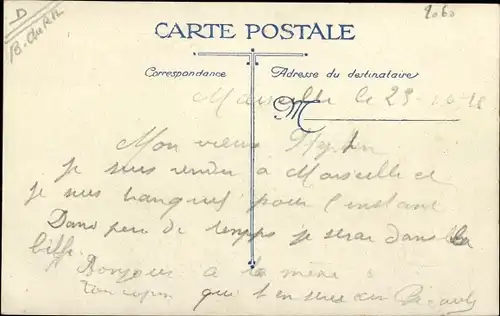 D
B. du Rh
2060
CARTE POSTALE
Correspondance
Adresse du destinataire
Marseille le 23-10-18
M
Mon vieux
je suis rendu à Marseille et
je suis tranquil pour l'instant
Dans peu de temps je serai dans la
biffe Bonjour à la mère
ton copin qui t'en serre cinq